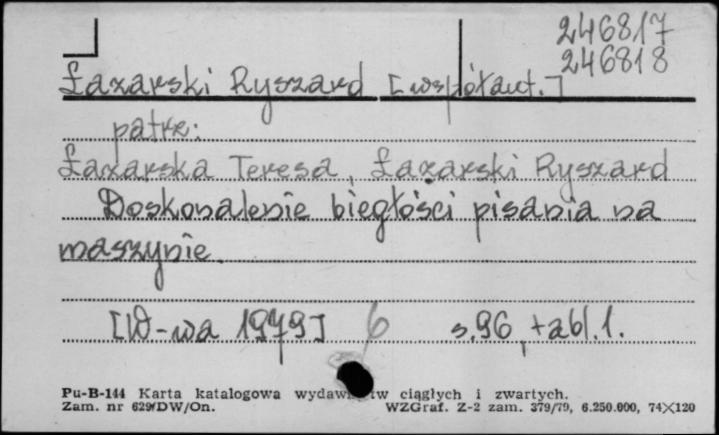 246817
246818
Łazarski Ryszard [współaut.]
patrz:
Łazarska Teresa, Łazarski Ryszard
Doskonalenie biegłości pisania na
maszynie.
[W-wa 1979] 6 s.96, tabl.1.
Pu-B-144 Karta katalogowa wydawnictw ciągłych i zwartych.
Zam. nr 629/DW/On. WZGraf. Z-2 zam. 379/79, 6.250.000, 74×120